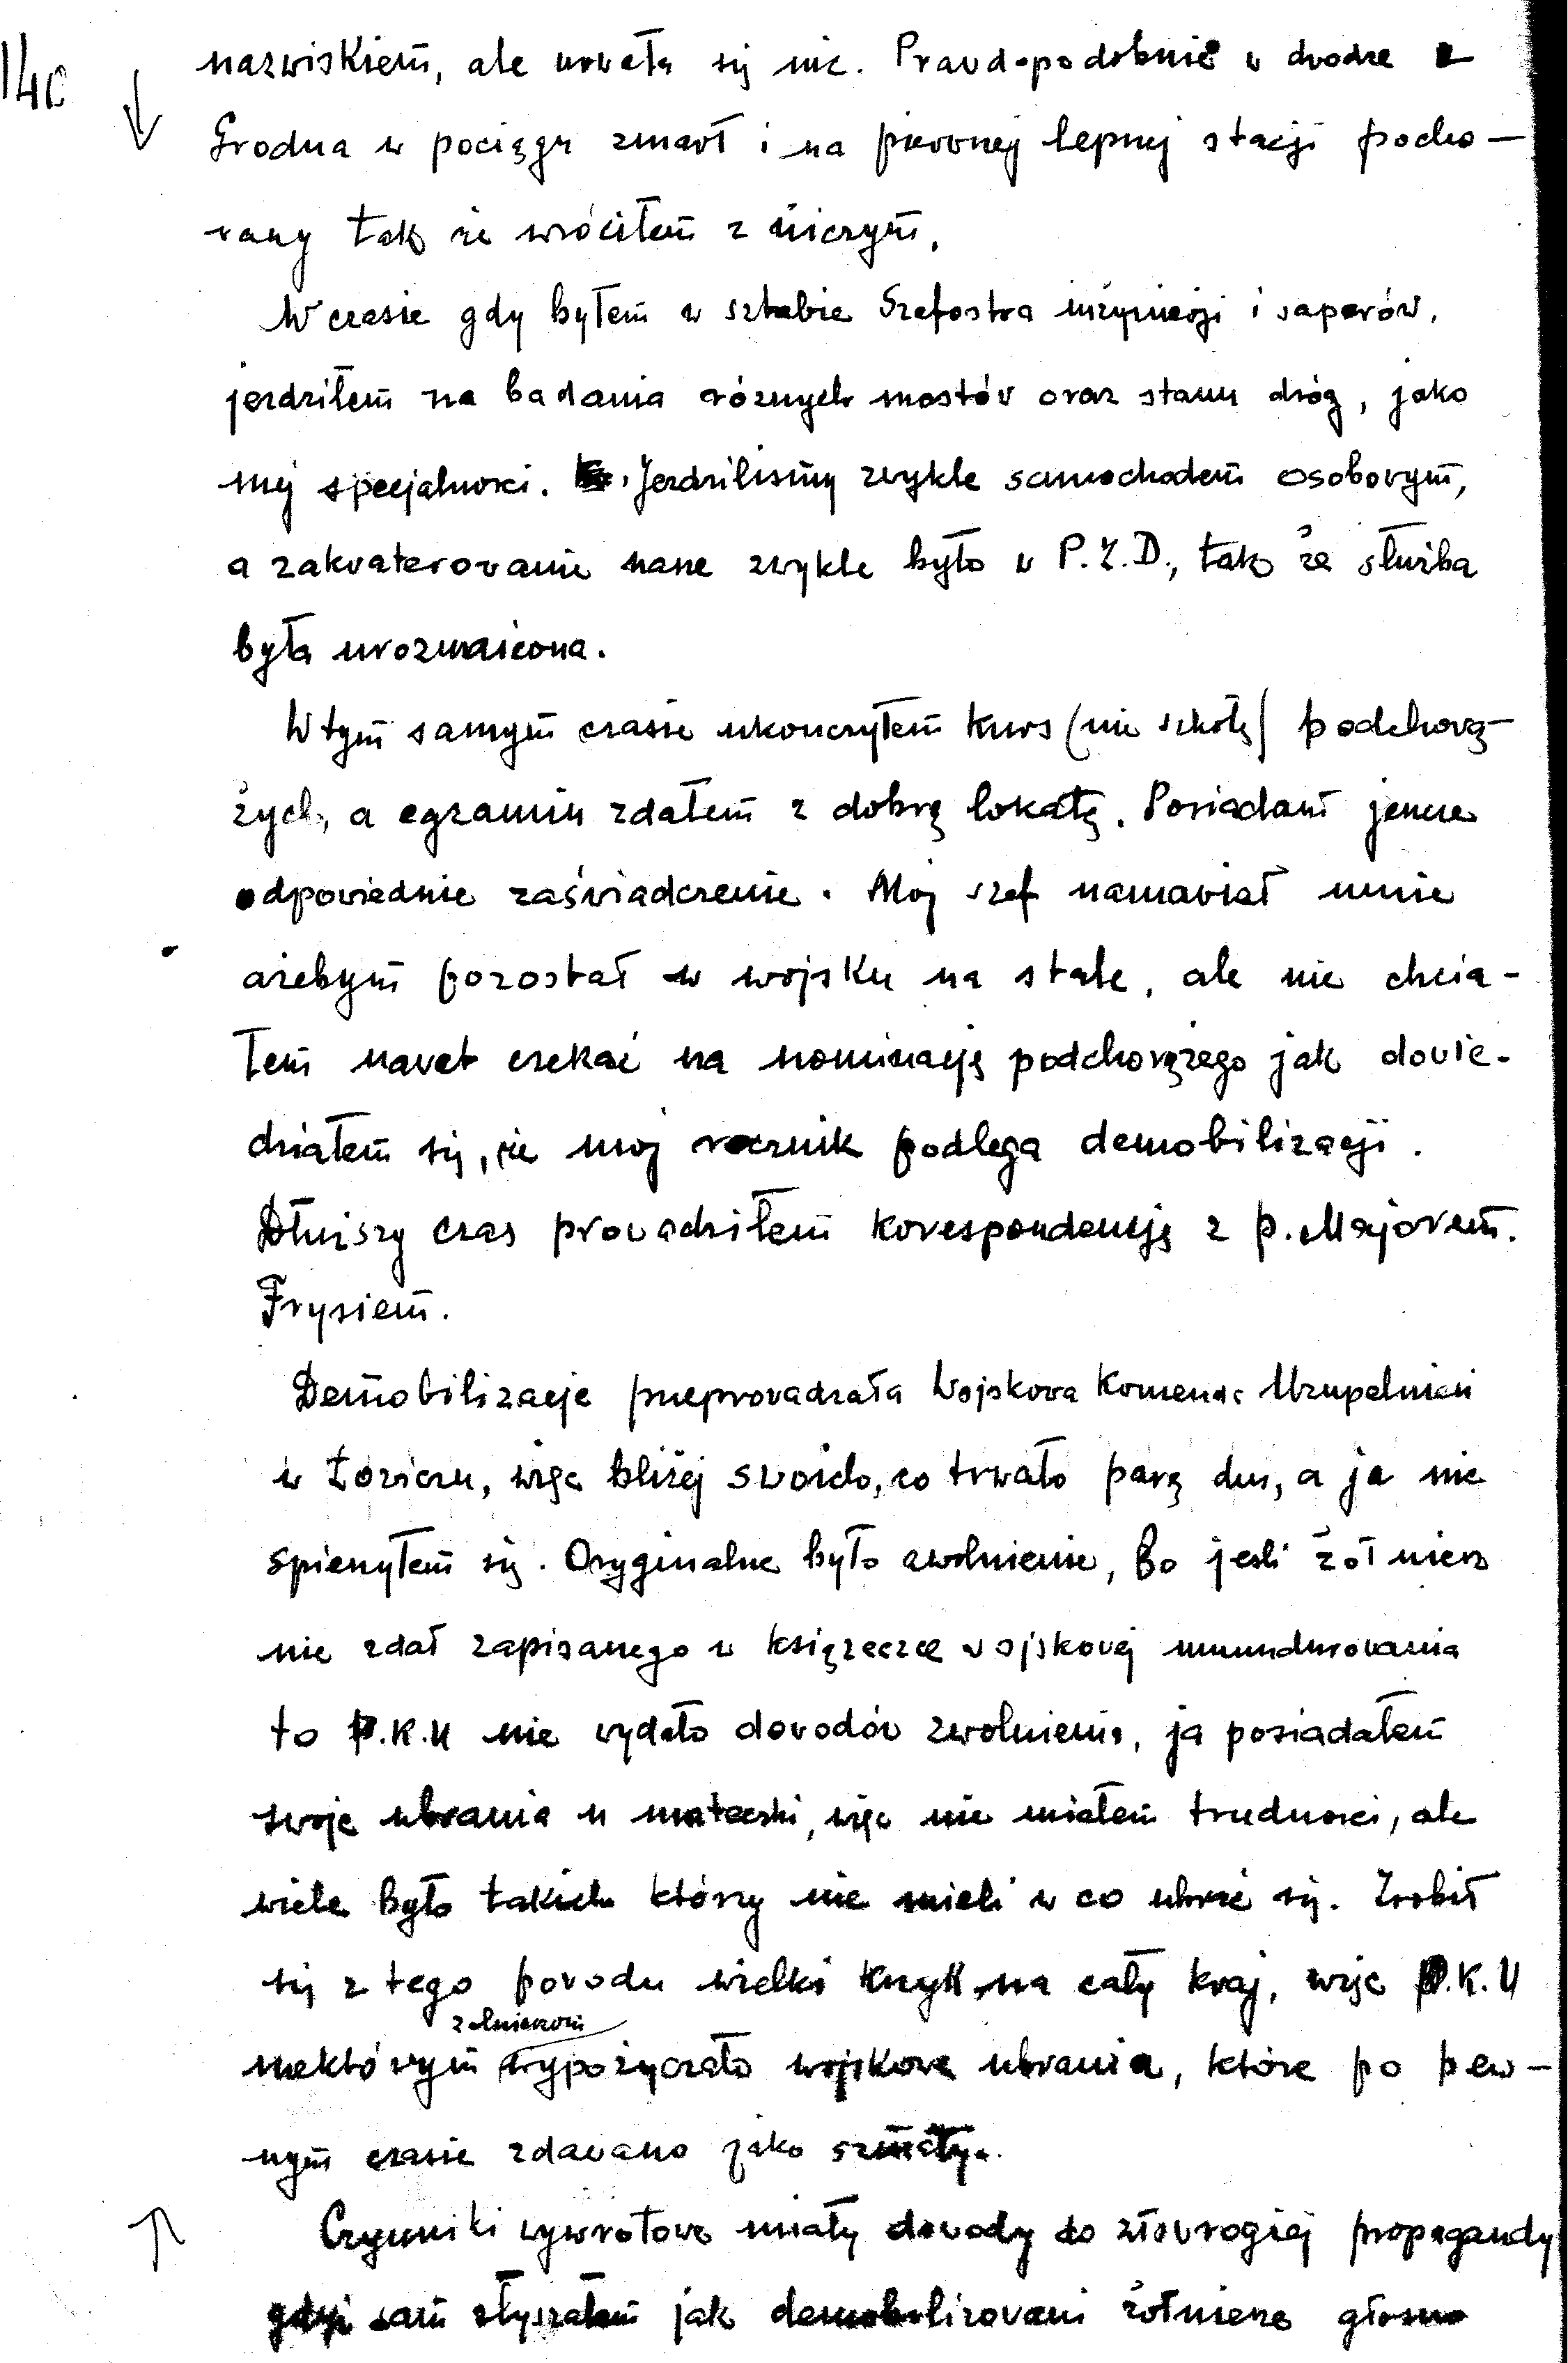 140
nazwiskiem, ale
się nic. Prawdopodobnie w drodze z
Grodna w pociągu zmarł i na pierwszej lepszej stacji pocho-
wany tak że wróciłem z niczym.
W czasie gdy byłem w sztabie Szefostwa inżynierji i saperów,
jezdziłem na badania różnych mostów oraz stanu dróg, jako
mej specjalnosci. Jezdzilismy zwykle samochodem osobowym,
a zakwaterowanie nasze zwykle było w P.Z.D., tak że służba
była urozmaicona.
W tym samym czasie ukonczyłem kurs (nie szkołę) podchorą-
żych, a egzamin zdałem z dobrą lokatą. Posiadam jeszcze
odpowiednie zaświadczenie. Moj szef namawiał mnie
ażebym pozostał w wojsku na stałe, ale nie chcia-
łem nawet czekać na nominację podchorążego jak dowie-
działem się, że moj rocznik podlega demobilizacji.
Dłuższy czas prowadziłem korespondencję z p. Majorem.
Frysiem.
Demobilizacje przeprowadzała Wojskowa Komenda Uzupełnień
w Łowiczu, więc bliżej swoich, co trwało parę dni, a ja nie
spieszyłem się. Oryginalne było zwolnienie, bo jesli żołnierz
nie zdał zapisanego w książeczce wojskowej umundurowania
to P.K.U nie wydało dowodów zwolnienia, ja posiadałem
swoje ubrania u mateczki, więc nie miałem trudnosci, ale
wiele było takich którzy nie mieli w co ubrać się. Zrobił
się z tego powodu wielki krzyk na cały kraj, więc P.K.U
żołnierzom
niektórym wypożyczało wojskowe ubrania, które po pew-
nym czasie zdawano jako szmaty.
Czynniki wywrotowe miały dowody do złowrogiej propagandy
gdyż sam słyszałem jak demobilizowani żołnierze głosno